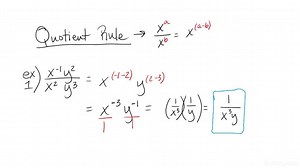 Quotient Rule → x^a / x^b = x^(a-b)
ex) 1) x^-1 y^2 / x^2 y^3 = x^(-1-2) y^(2-3)
= x^-3 y^-1 / 1 1 = (1/x^3)(1/y) = 1/x^3y